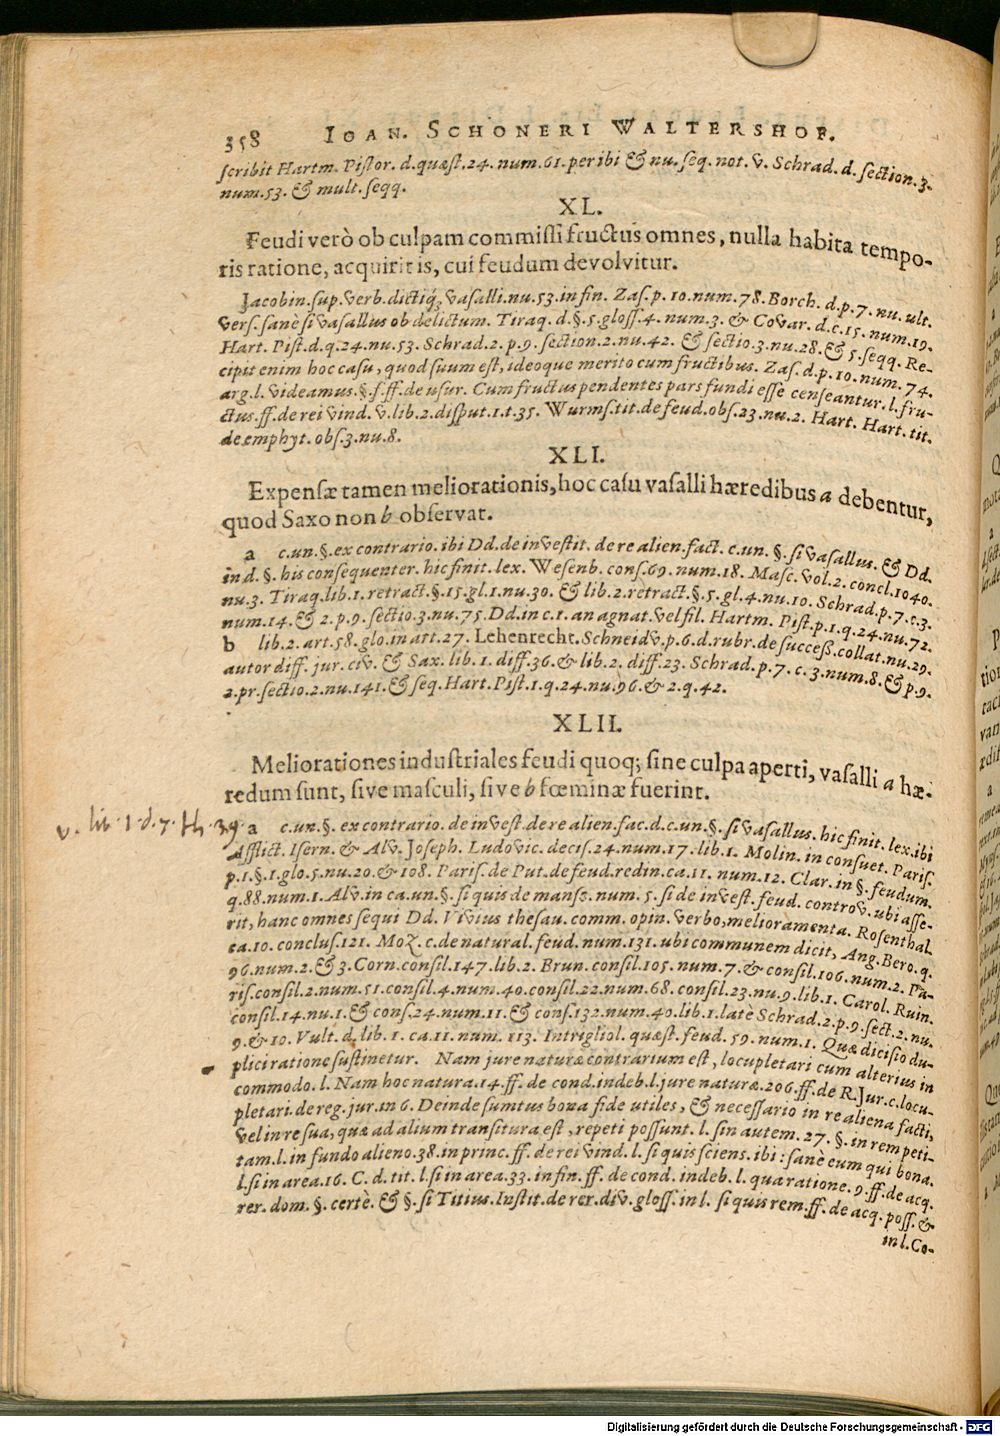 358 IOAN. SCHONERI WALTERSHOF.
scribit Hartm. Pistor. d. quæst. 24. num. 61. per ibi & nu. seq. not. v. Schrad. d. section. 3.
num. 53. & mult. seqq.
XL.
Feudi verò ob culpam commissi fructus omnes, nulla habita tempo-
ris ratione, acquirit is, cui feudum devolvitur.
Jacobin. sup. verb. dictiq́; vasalli. nu. 53. in fin. Zas. p. 10. num. 78. Borch. d. p. 7. nu. ult.
vers. sanè si vasallus ob delictum. Tiraq. d. §. 5. gloss. 4. num. 3. & Covar. d. c. 15. num. 19.
Hart. Pist. d. q. 24. nu. 53. Schrad. 2. p. 9. section. 2. nu. 42. & sectio. 3. nu. 28. & 5. seqq. Re-
cipit enim hoc casu, quod suum est, ideoque merito cum fructibus. Zas. d. p. 10. num. 74.
arg. l. videamus. §. f. ff. de usur. Cum fructus pendentes pars fundi esse censeantur. l. fru-
ctus. ff. de rei vind. v. lib. 2. disput. 1. t. 35. Wurms. tit. de feud. obs. 23. nu. 2. Hart. Hart. tit.
de emphyt. obs. 3. nu. 8.
XLI.
Expensæ tamen meliorationis, hoc casu vasalli hæredibus a debentur,
quod Saxo non b observat.
a c. un. §. ex contrario. ibi Dd. de investit. de re alien. fact. c. un. §. si vasallus. & Dd.
in d. §. his consequenter. hic finit. lex. Wesenb. cons. 69. num. 18. Masc. vol. 2. concl. 1040.
nu. 3. Tiraq. lib. 1. retract. §. 15. gl. 1. nu. 30. & lib. 2. retract. §. 5. gl. 4. nu. 10. Schrad. p. 7. c. 3.
num. 14. & 2. p. 9. sectio. 3. nu. 75. Dd. in c. 1. an agnat. vel fil. Hartm. Pist. p. 1. q. 24. nu. 72.
b lib. 2. art. 58. glo. in art. 27. Lehenrecht. Schneidv. p. 6. d. rubr. de success. collat. nu. 29.
autor diff. jur. civ. & Sax. lib. 1. diff. 36. & lib. 2. diff. 23. Schrad. p. 7. c. 3. num. 8. & p. 9.
2. pr. sectio. 2. nu. 141. & seq. Hart. Pist. 1. q. 24. nu. 96. & 2. q. 42.
XLII.
Meliorationes industriales feudi quoq; sine culpa aperti, vasalli a hæ-
redum sunt, sive masculi, sive b fœminæ fuerint.
v. lib. 1. d. 7. th. 39.
a c. un. §. ex contrario. de invest. de re alien. fac. d. c. un. §. si vasallus. hic finit. lex. ibi
Afflict. Isern. & Alv. Joseph. Ludovic. decis. 24. num. 17. lib. 1. Molin. in consuet. Paris.
p. 1. §. 1. glo. 5. nu. 20. & 108. Paris. de Put. de feud. redin. ca. 11. num. 12. Clar. in §. feudum.
q. 88. num. 1. Alv. in ca. un. §. si quis de manso. num. 5. si de invest. feud. controv. ubi asse-
rit, hanc omnes sequi Dd. Vivius thesau. comm. opin. verbo, melioramenta. Rosenthal.
ca. 10. conclus. 121. Moz. c. de natural. feud. num. 131. ubi communem dicit, Ang. Bero. q.
96. num. 2. & 3. Corn. consil. 147. lib. 2. Brun. consil. 105. num. 7. & consil. 106. num. 2. Pa-
ris. consil. 2. num. 51. consil. 4. num. 40. consil. 22. num. 68. consil. 23. nu. 9. lib. 1. Carol. Ruin.
consil. 14. nu. 1. & cons. 24. num. 11. & cons. 132. num. 40. lib. 1. latè Schrad. 2. p. 9. sect. 2. nu.
9. & 10. Vult. d. lib. 1. ca. 11. num. 113. Intrigliol. quæst. feud. 59. num. 1. Quæ dicisio du-
plici ratione sustinetur. Nam jure naturæ contrarium est, locupletari cum alterius in
commodo. l. Nam hoc natura. 14. ff. de cond. indeb. l. jure naturæ. 206. ff. de R. Jur. c. locu-
pletari. de reg. jur. in 6. Deinde sumtus bona fide utiles, & necessario in re aliena facti,
vel in re sua, quæ ad alium transitura est, repeti possunt. l. sin autem. 27. §. in rem peti-
tam. l. in fundo alieno. 38. in princ. ff. de rei vind. l. si quis sciens. ibi: sanè eum qui bona.
l. si in area. 16. C. d. tit. l. si in area. 33. in fin. ff. de cond. indeb. l. qua ratione. 9. ff. de acq.
rer. dom. §. certè. & §. si Titius. Instit. de rer. div. gloss. in l. si quis rem. ff. de acq. poss. &
in l. Co-
Digitalisierung gefördert durch die Deutsche Forschungsgemeinschaft - DFG